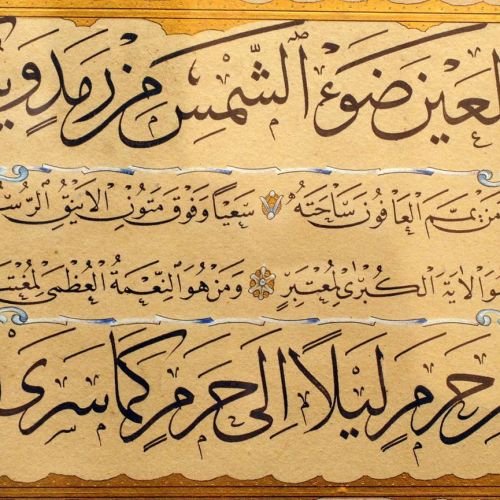 لعَيْنُ ضَوْءَ الشَّمْسِ مِنْ رَمَدٍ وَيُ
مَنْ يَمَّمَ العَافُونَ سَاحَتَهُ سَعْيًا وَفَوْقَ مُتُونِ الْاَيْنُقِ الرُّسُ
هُوَ الْاٰيَةُ الْكُبْرٰى لِمُعْتَبِرٍ وَمَنْ هُوَ النِّعْمَةُ الْعُظْمٰى لِمُغْتَ
حَرَمٍ لَيْلًا اِلٰى حَرَمٍ كَمَا سَرَى